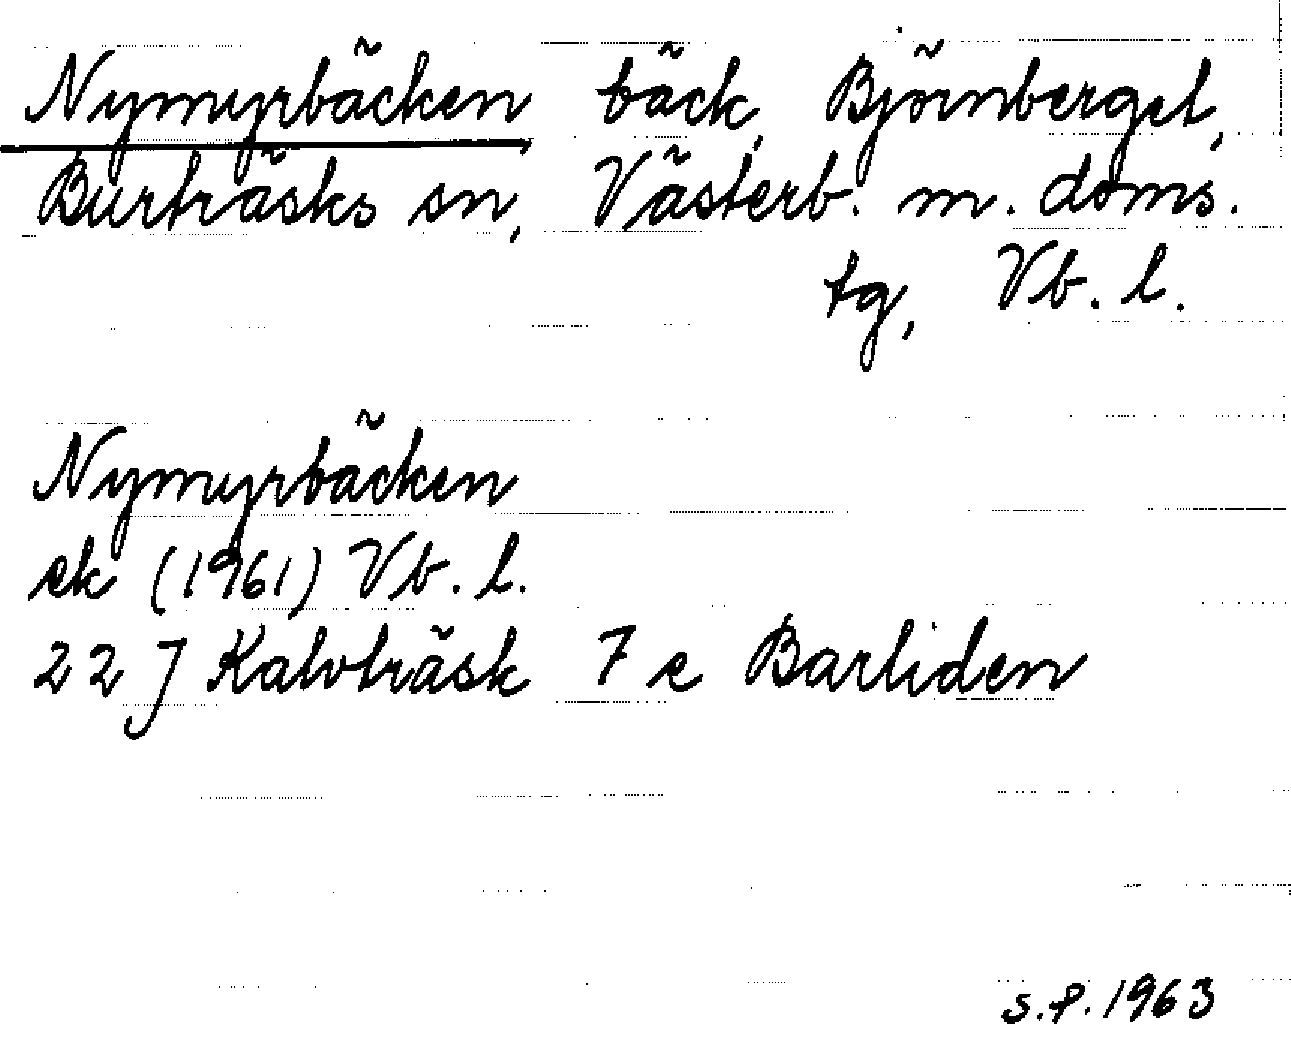 Nymyrbäcken, bäck, Björnberget,
Burträsks sn, Västerb. m. doms.
tg, Vb. l.
Nymyrbäcken
ek (1961) Vb. l.
22 J Kalvträsk 7 e Barliden
S.P. 1963